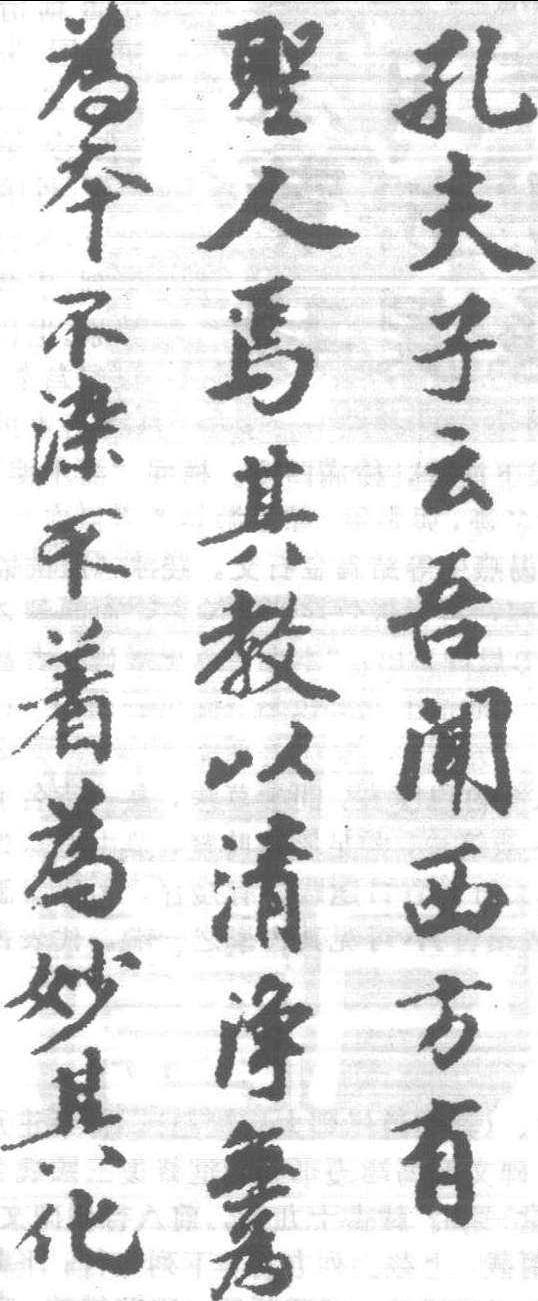 孔夫子云吾聞西方有
聖人焉其教以清淨無為
為本不染不着為妙其化